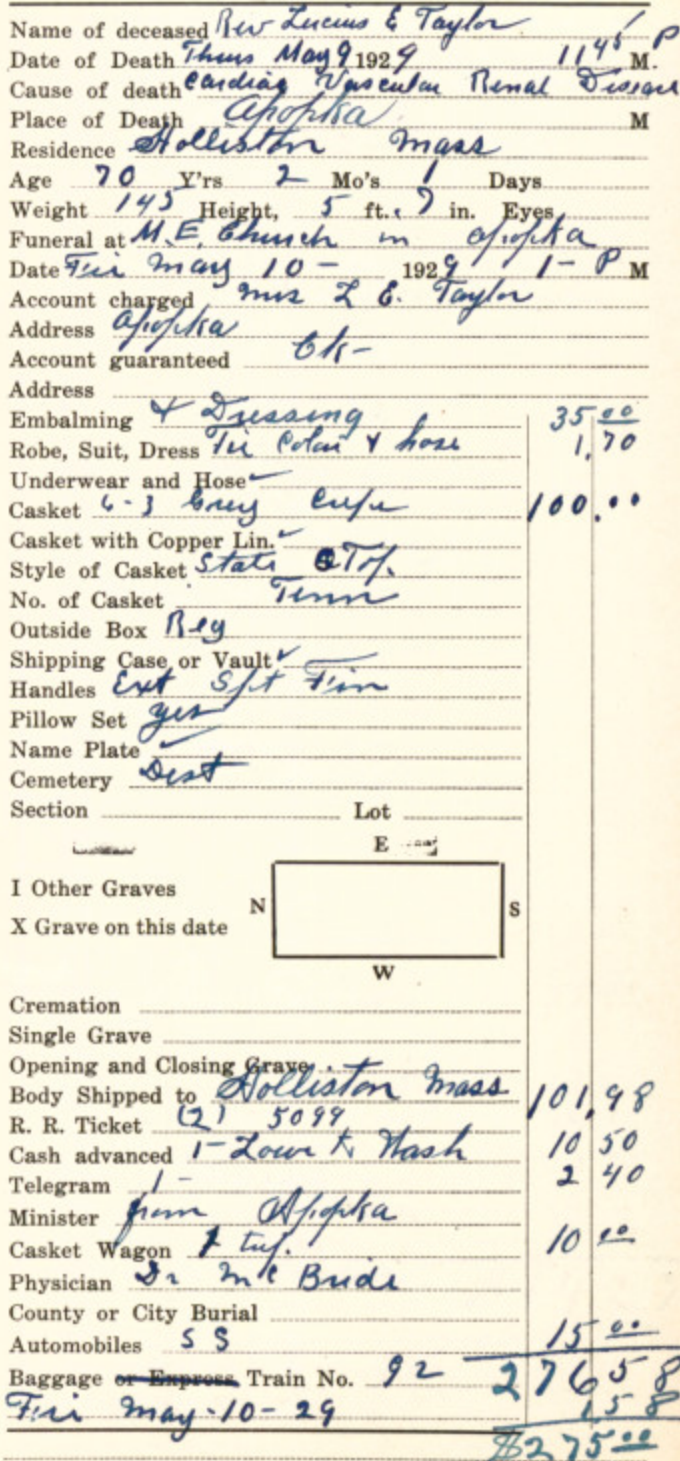 Name of deceased Rev Lucius E Taylor
Date of Death Thurs May 9 1929 11 45 P M.
Cause of death Cardiac Vascular Renal Disease
Place of Death Apopka M
Residence Holliston Mass
Age 70 Y'rs 2 Mo's 1 Days
Weight 145 Height, 5 ft. 7 in. Eyes
Funeral at M.E. Church in Apopka
Date Fri May 10 - 1929 1 - P M
Account charged Mrs L E. Taylor
Address Apopka
Account guaranteed Ok -
Address
Embalming & Dressing 35 00
Robe, Suit, Dress Tie Colar & hose 1.70
Underwear and Hose ✓
Casket 6-3 Grey Crepe 100.00
Casket with Copper Lin. ✓
Style of Casket State Top.
No. of Casket Tenn
Outside Box Reg
Shipping Case or Vault ✓
Handles Ext Sft Fin
Pillow Set yes
Name Plate ✓
Cemetery Dist
Section Lot
E
I Other Graves
N S
X Grave on this date
W
Cremation
Single Grave
Opening and Closing Grave
Body Shipped to Holliston Mass 101.98
R. R. Ticket (2) 5099
Cash advanced 1- Lower to Wash 10 50
Telegram 1 - 2 40
Minister from Apopka
Casket Wagon 1 10 00
Physician Dr McBride
County or City Burial
Automobiles S S 15 00
Baggage or Express Train No. 92 276 58
Fri May-10-29 1 58
$275 00